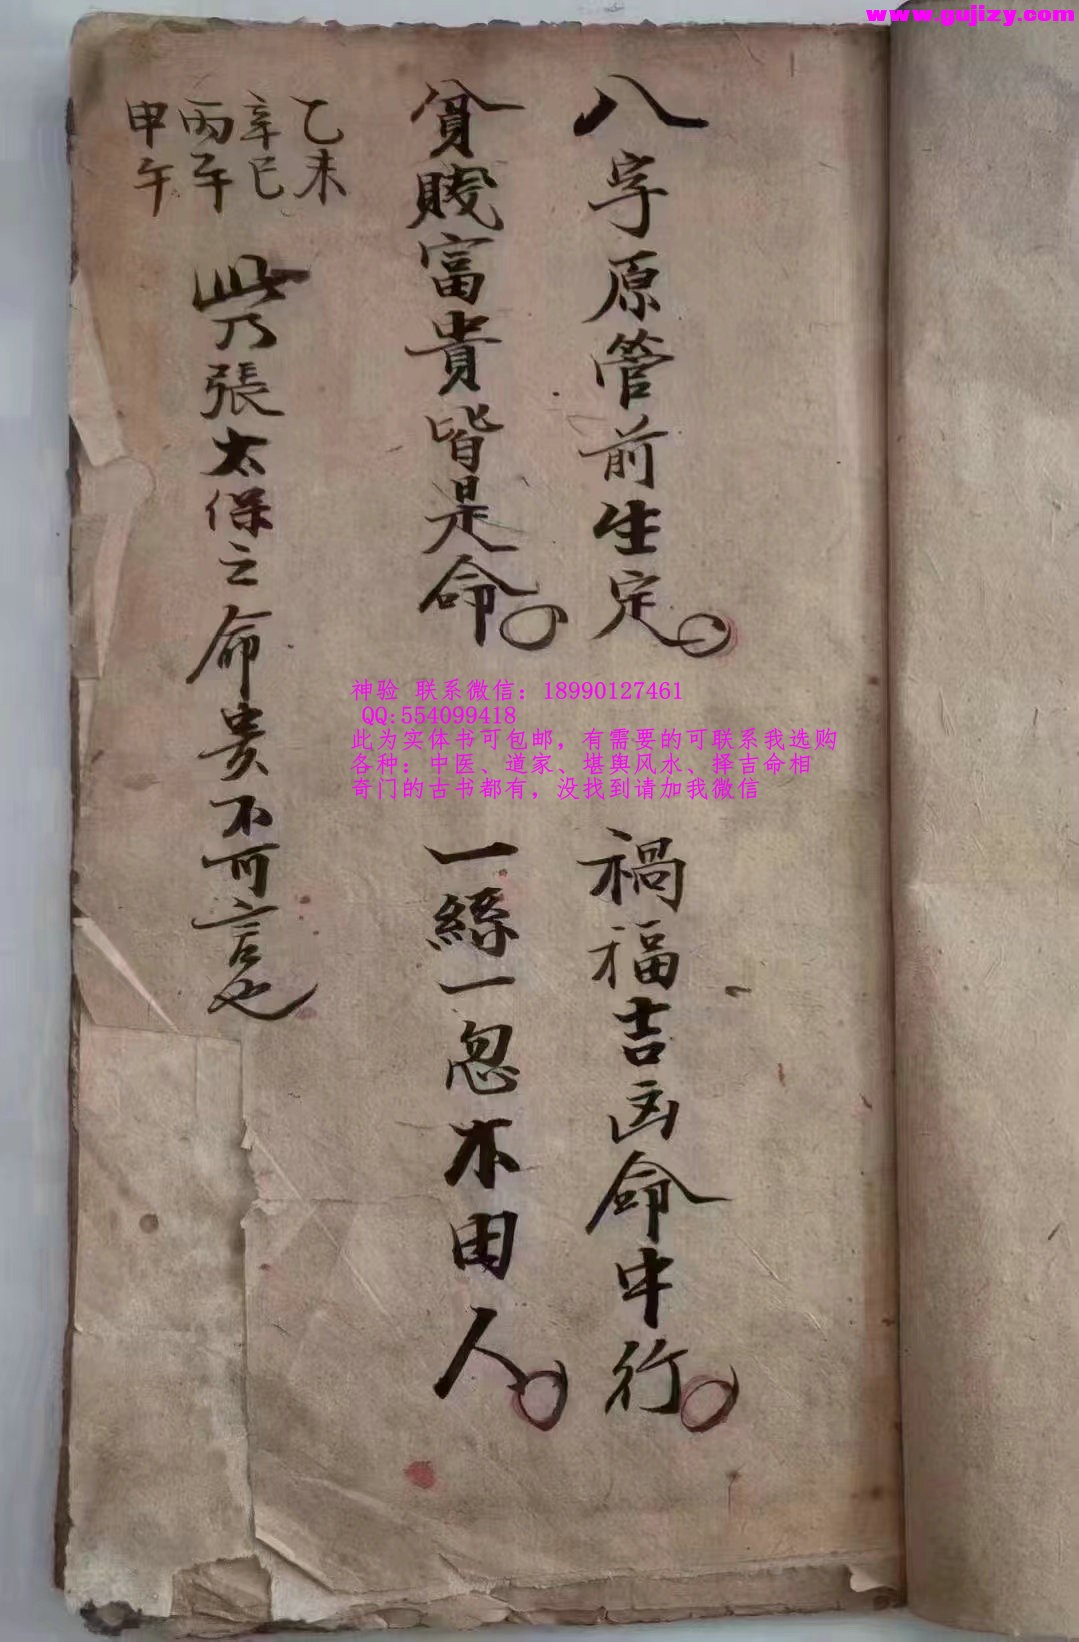 www.gujizy.com
八字原管前生定。禍福吉凶命中行。
貧賤富貴皆是命。一絲一忽不由人。
乙未
辛巳
丙午
甲午
此乃張太保之命貴不可言也
神验 联系微信：18990127461
QQ:554099418
此为实体书可包邮，有需要的可联系我选购
各种：中医、道家、堪舆风水、择吉命相
奇门的古书都有，没找到请加我微信